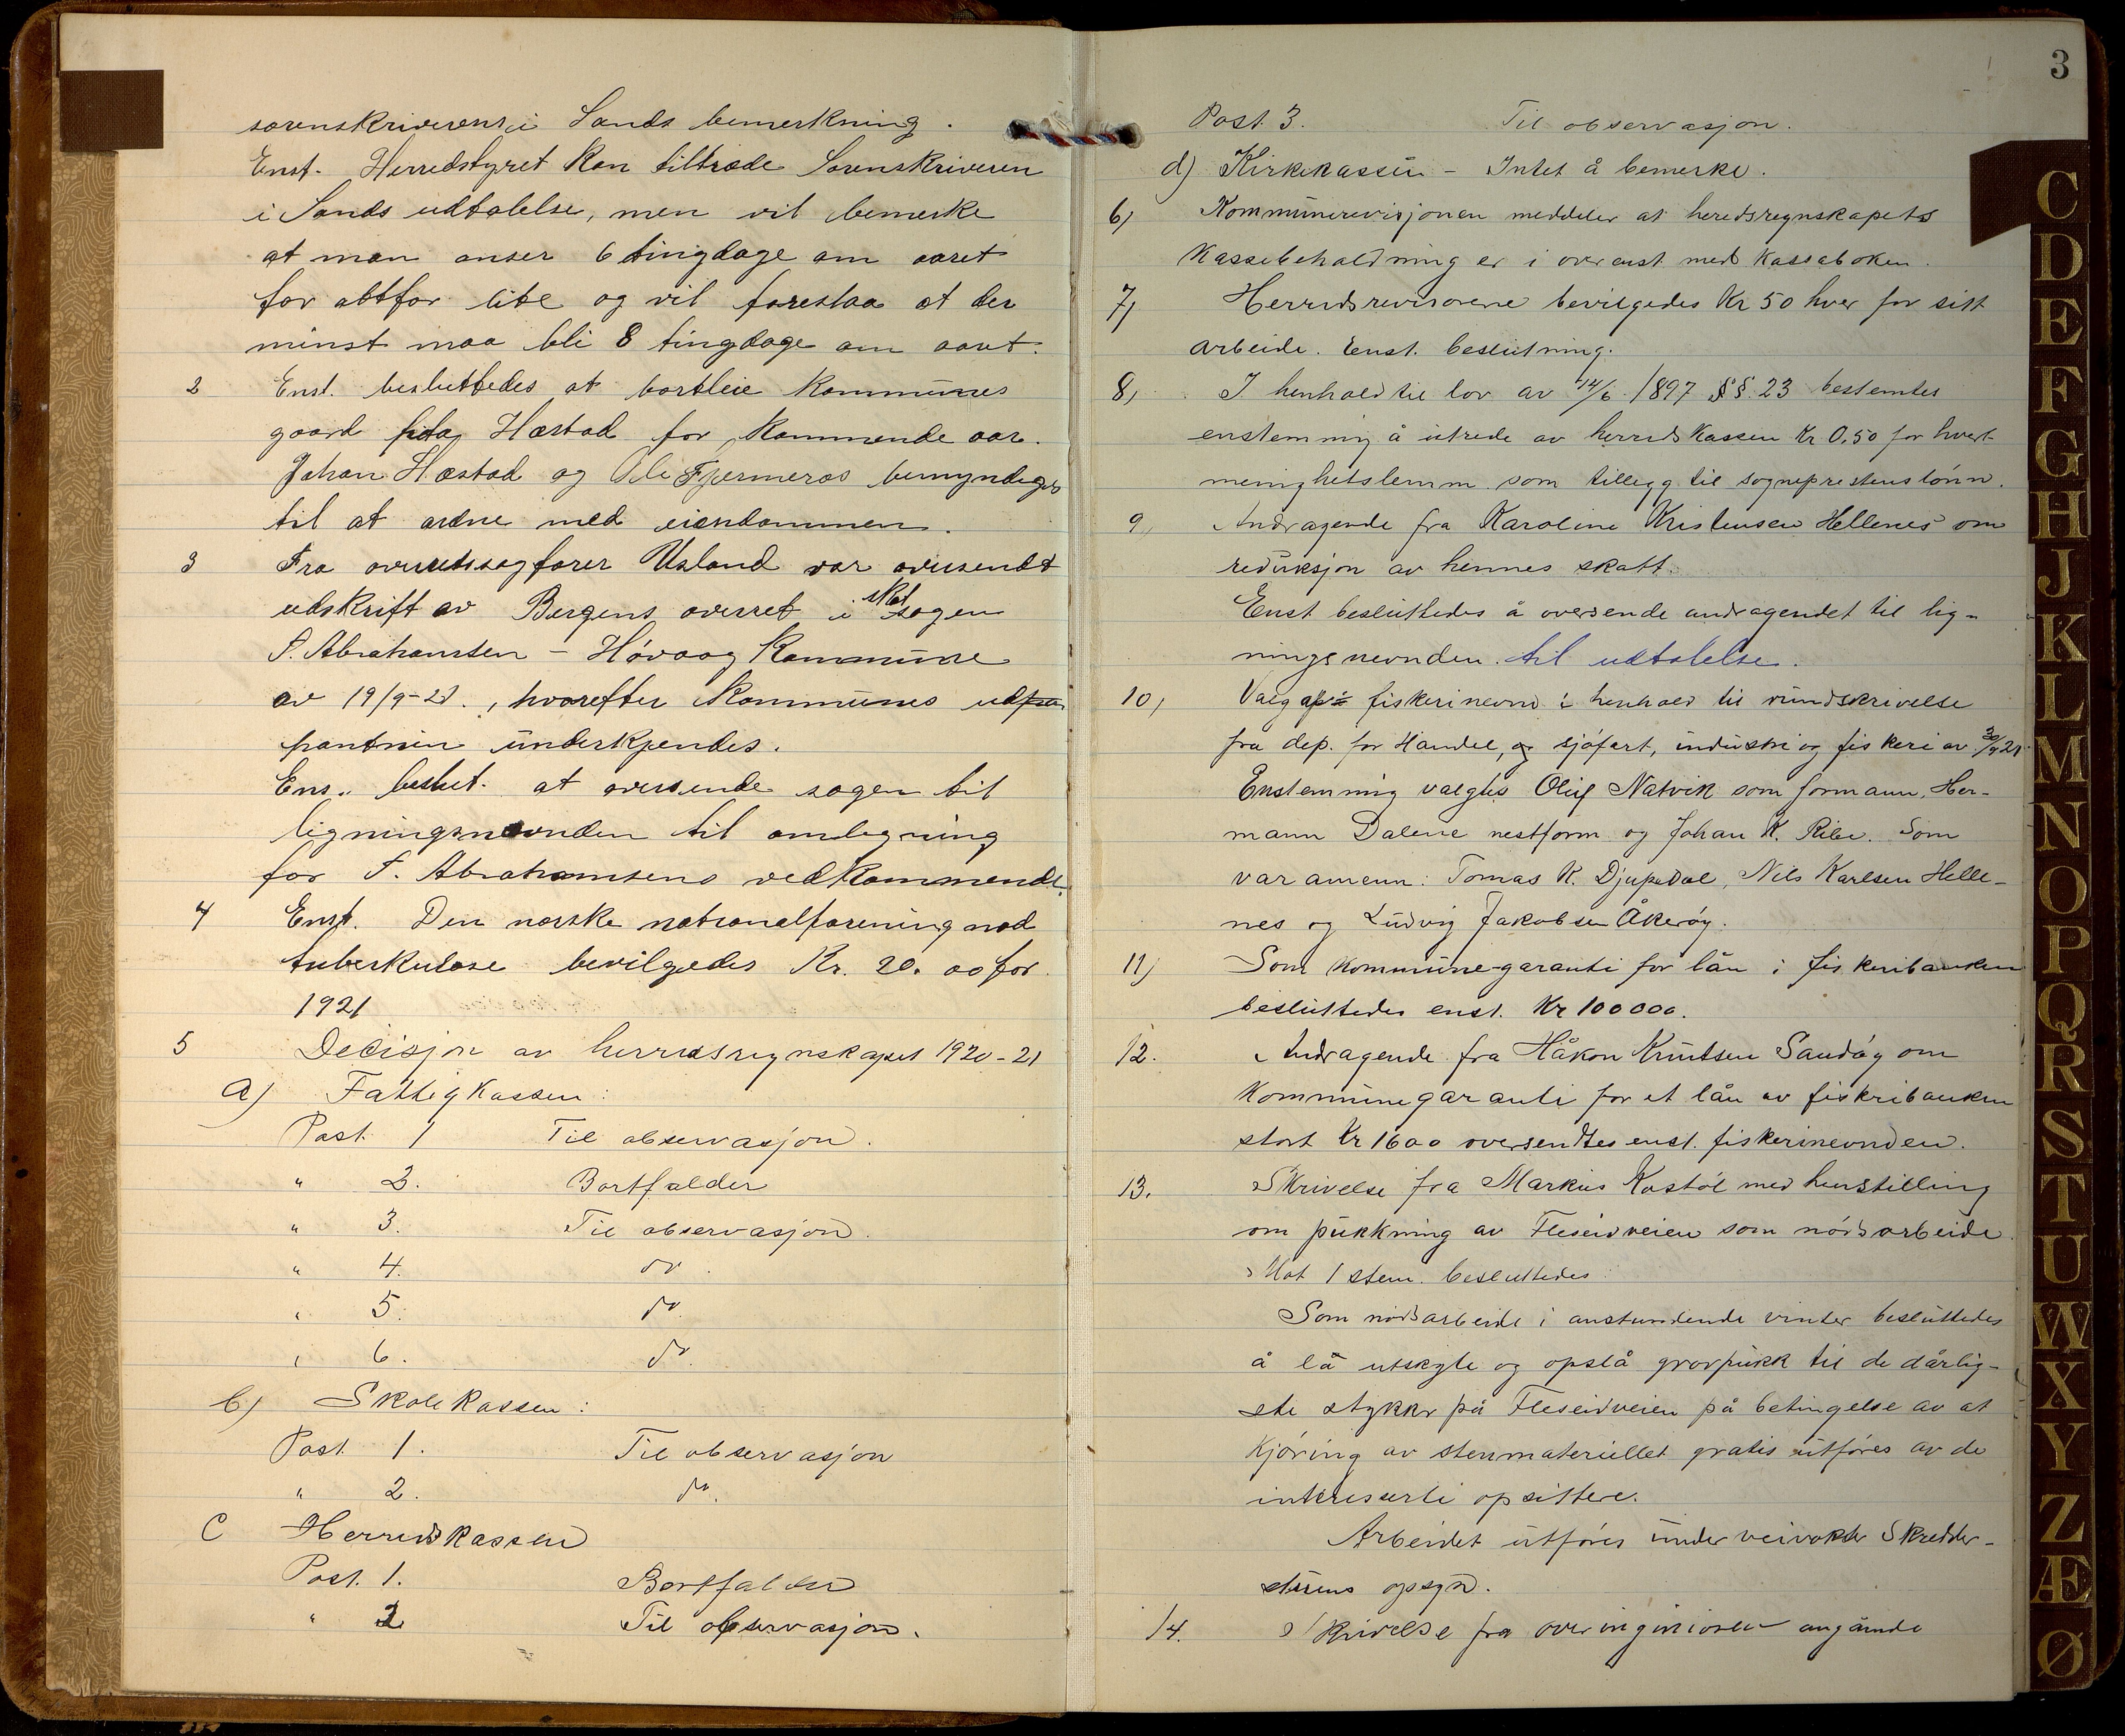 sorenskriverens i Sands bemerkning.
Enst. Herredstyret kan tiltræde Sorenskriveren
i Sands udtalelse, men vil bemerke
at man anser 6 tingdage om aaret
for altfor lite og vil foreslaa at der
minst maa bli 8 tingdage om aaret.
2 Enst. besluttedes at bortleie kommunes
gaard Hæstad for kommende aar.
Johan Hæstad og Ole Fjermeros bemyndiges
til at ordne med eiendommen.
3 Fra overretssagfører Usland var oversendt
utskrift av Bergens overret i skat sagen
S. Abrahamsen – Høvaag Kommune
av 19/9-21., hvorefter Kommunes ud
pantnin underkjendes.
Ens. beslut. at oversende sagen til
ligningsnevnden til omligning
for S. Abrahamsens vedkommende.
4 Enst. Den norske nationalforening mod
tuberkulose bevilgedes Kr. 20.00 for
1921
5 Decisjon av herredsregnskapet 1920-21
a) Fattigkassen:
Post 1 Til observasjon.
" 2. Bortfalder
" 3. Til observasjon.
" 4. do.
" 5. do.
" 6. do.
b) Skolekassen:
Post 1. Til observasjon
" 2. do.
C Herredskassen
Post. 1. Bortfalder
" 2 Til observasjon.
3
Post. 3. Til observasjon.
d) Kirkekassen – Intet å bemerke.
6) Kommunerevisjonen meddeler at heredsregnskapets
kassebeholdning er i overenst. med kassaboken.
7) Herredsrevisorene bevilgedes Kr 50 hver for sitt
arbeide. Enst. beslutning.
8) I henhold til lov av 14/6 1897 §§ 23 bestemtes
enstemmig å utrede av herredskassen Kr 0,50 for hvert
menighetslemm som tillegg til sogneprestens lønn.
9) Andragende fra Karoline Kristensen Hellenes om
reduksjon av hennes skatt.
Enst besluttedes å oversende andragendet til lig-
ningsnevnden. til udtalelse.
10) Valg av fiskerinevnd i henhold til rundskrivelse
fra dep. for Handel, og sjøfart, industri og fiskeri av 30/9 21.
Enstemmig valgtes Oluf Natvik som formann, Her-
mann Dalene nestform. og Johan K. Ribe. Som
varamenn: Tomas K. Djupedal, Nils Karlsen Helle-
nes og Ludvig Jakobsen Åkerøy.
11) Som kommune-garanti for lån i fiskeribanken
besluttedes enst. Kr 100000.
12. Andragende fra Håkon Knutsen Sandøy om
kommunegaranti for et lån av fiskribanken
stort Kr 1600 oversendtes enst. fiskerinevnden.
13. Skrivelse fra Markus Kostøl med henstilling
om pukkning av Fleseidveien som nødsarbeide.
Mot 1 stem. besluttedes:
Som nødsarbeide i anstundende vinter besluttedes
å la utskyte og opslå grovpukk til de dårlig-
ste stykker på Fleseidveien på betingelse av at
kjøring av stenmateriellet gratis utføres av de
intereserte opsittere.
Arbeidet utføres under veivokter Skredder-
stuens opsyn.
14. Skrivelse fra overingeniøren angående
C
D
E
F
G
H
J
K
L
M
N
O
P
Q
R
S
T
U
W
X
Y
Z
Æ
Ø